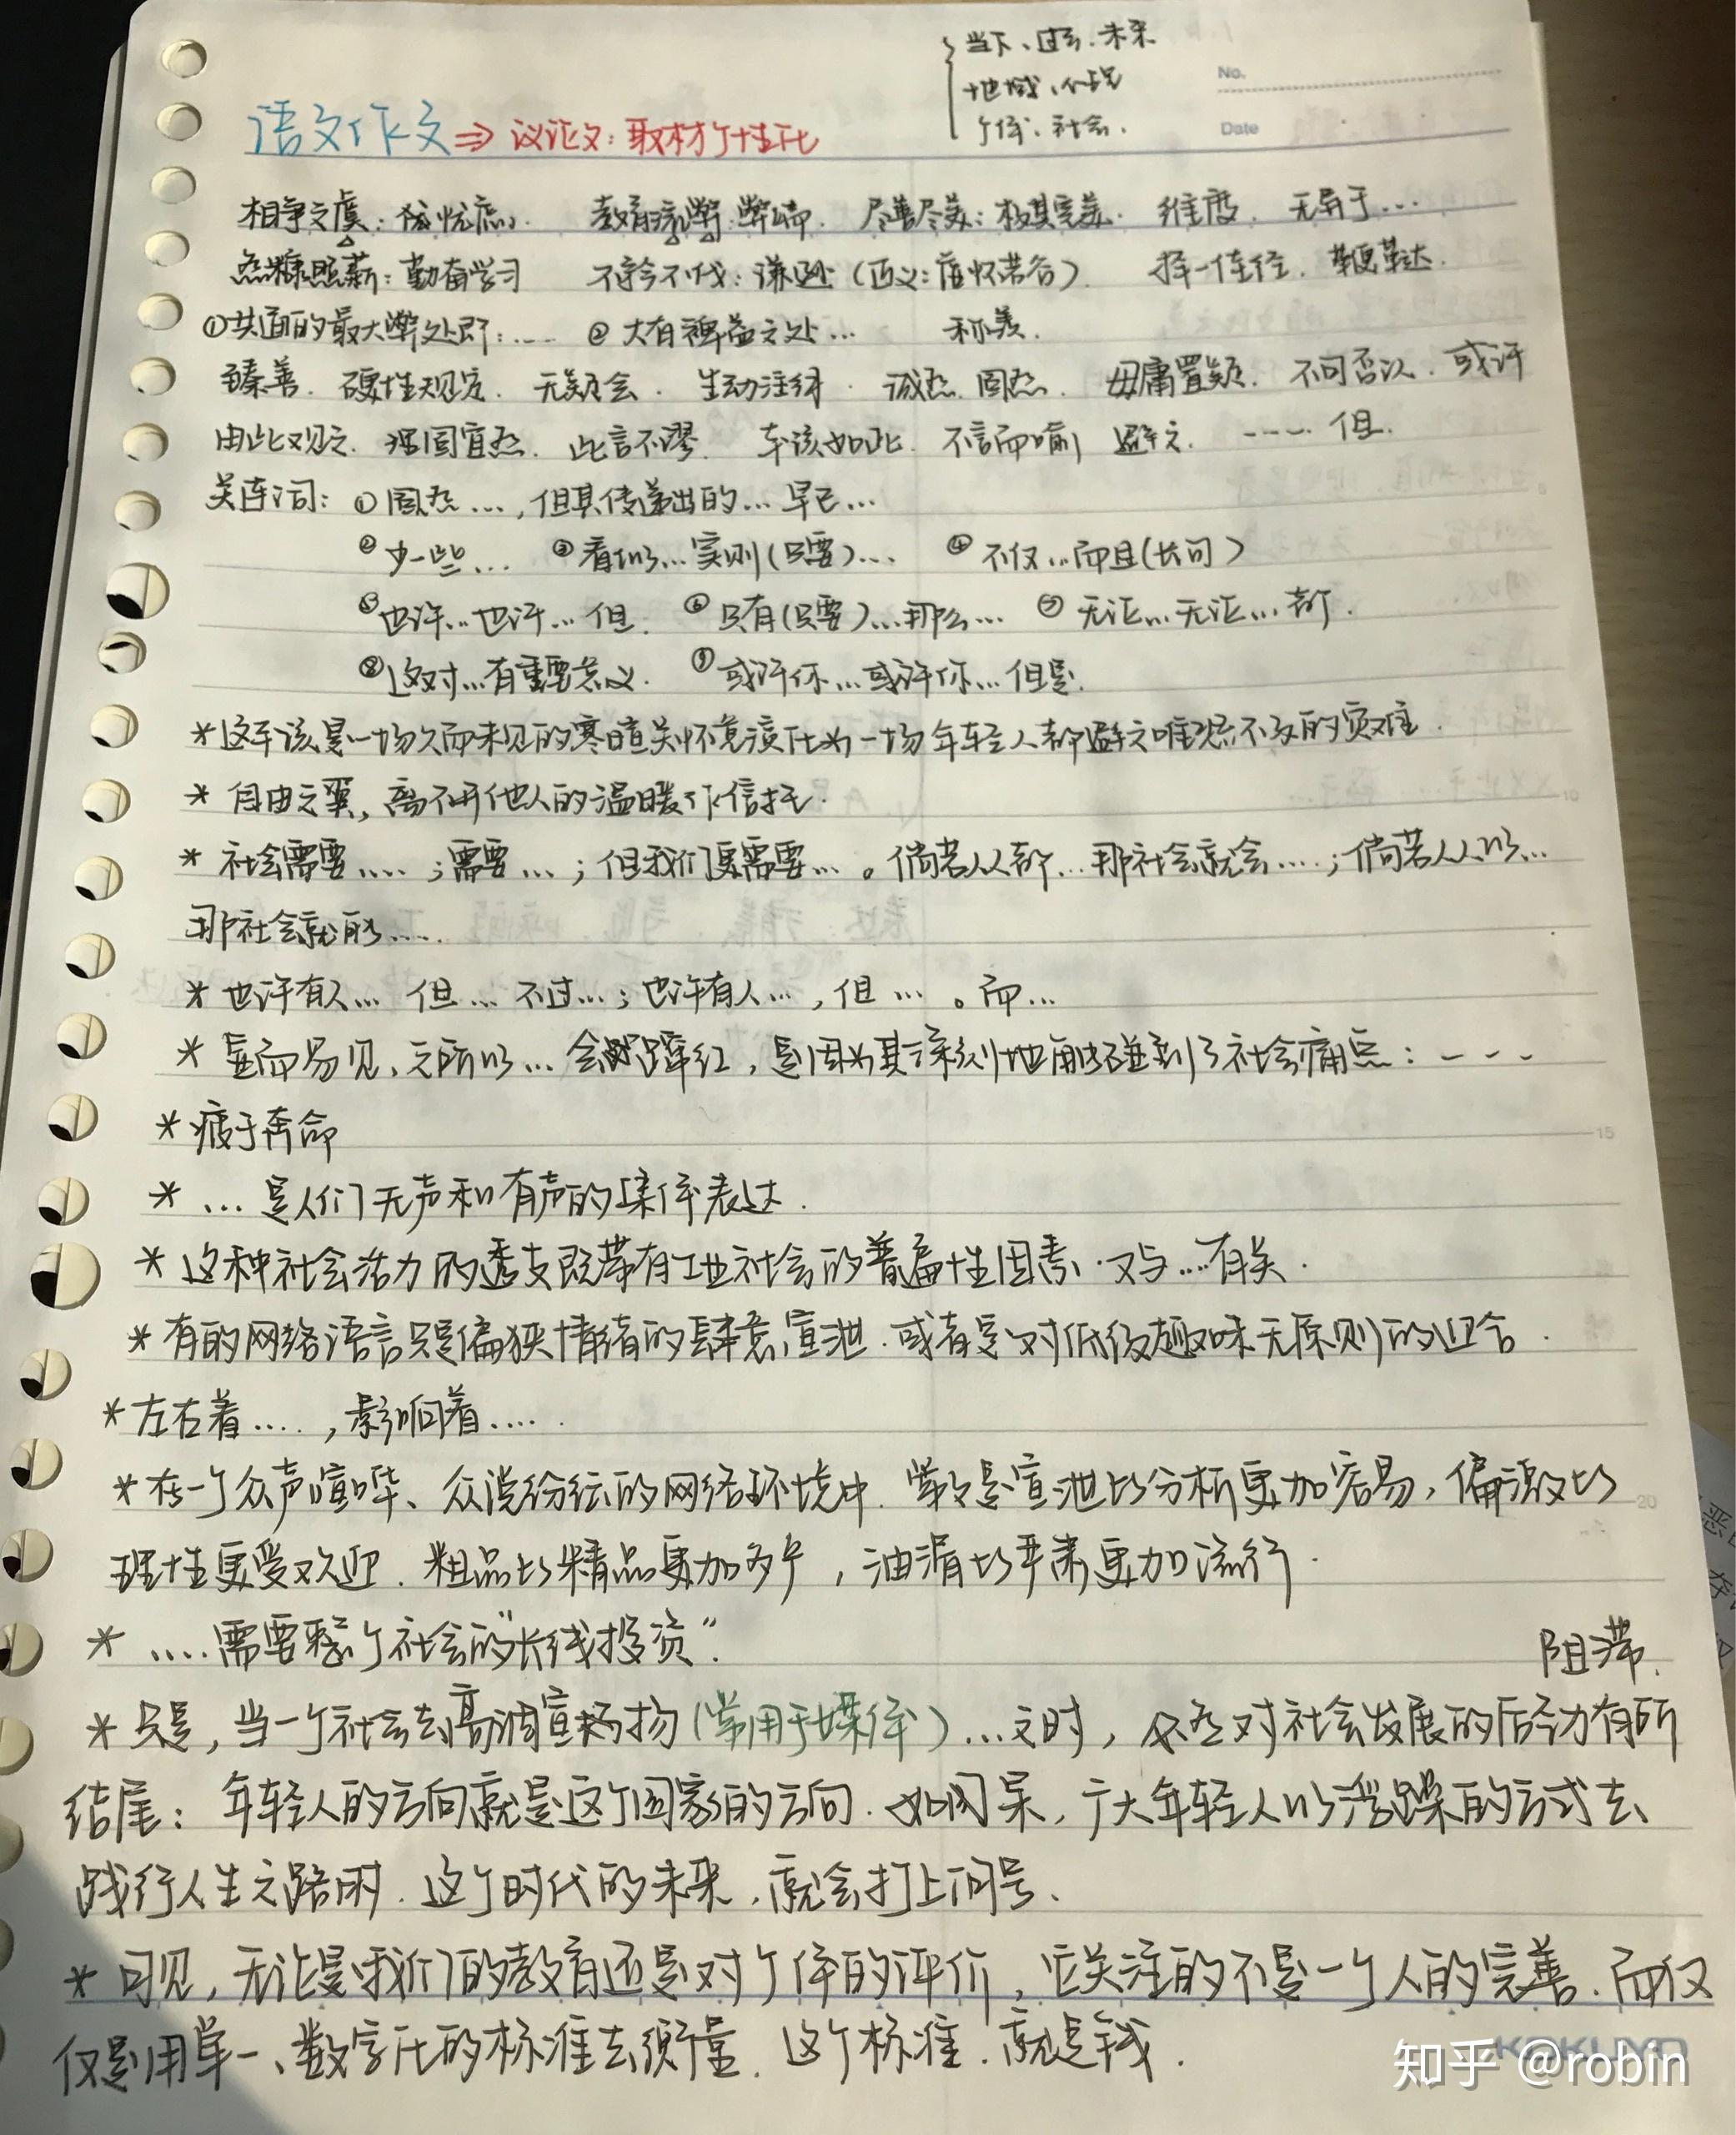 当下、过去、未来
地域、个人
个体、社会.
No.
Date
语文作文⇒议论文：取材个性化
相争之虞：忧虑. 教育弊端. 尽善尽美：极其完美. 维度. 无异于…
然糠照薪：勤奋学习 不矜不伐：谦逊（近义：虚怀若谷） 择一佳径. 鞭挞.
①其面的最大弊处即：…. ②大有裨益之处… 称羡.
臻善. 硬性规定. 无疑会. 生动注释. 诚然. 固然. 毋庸置疑. 不可否认. 或许
由此观之. 理固宜然. 此言不谬. 本该如此. 不言而喻 避之. ---- 但.
关连词：①固然…，但其传递出的…早已…
②少一些… ③看似…实则(只要)… ④不仅…而且(长句)
⑤也许…也许…但. ⑥只有(只要)…那么… ⑦无论…无论…都.
⑧这对…有重要意义. ⑨或许你…或许你…但是.
*这本该是一场久而未见的寒暄关怀竟演化为一场年轻人都避之唯恐不及的灾难.
*自由之翼，离不开他人的温暖作信托.
*社会需要….；需要…；但我们更需要…。倘若人人都…那社会就会….；倘若人人以…
那社会就能…..
*也许有人… 但…不过…；也许有人…，但…。而…
*显而易见、之所以…会蹿红，是因为其深刻地触碰到了社会痛点：---
*疲于奔命
*…是人们无声和有声的集体表达.
*这种社会活力的透支既带有工业社会的普遍性因素.又与…有关.
*有的网络语言只是偏狭情绪的肆意宣泄.或者是对低级趣味无原则的迎合.
*左右着….，影响着…..
*在一个众声喧哗、众说纷纭的网络环境中.常常是宣泄比分析更加容易，偏激比
理性更受欢迎.粗品比精品更加多产，油滑比严肃更加流行.
*….需要整个社会的“长线投资”. 阻滞.
*只是，当一个社会去高调宣扬(常用于媒体)…之时，必然对社会发展的后劲力有所
结尾：年轻人的方向就是这个国家的方向.如闰呆，广大年轻人以浮躁的方式去
践行人生之路时.这个时代的未来.就会打上问号、
*可见，无论是我们的教育还是对个体的评价，它关注的不是一个人的完善.而仅
仅是用单一、数字化的标准去衡量.这个标准.就是钱.
KOKUYO
知乎 @robin